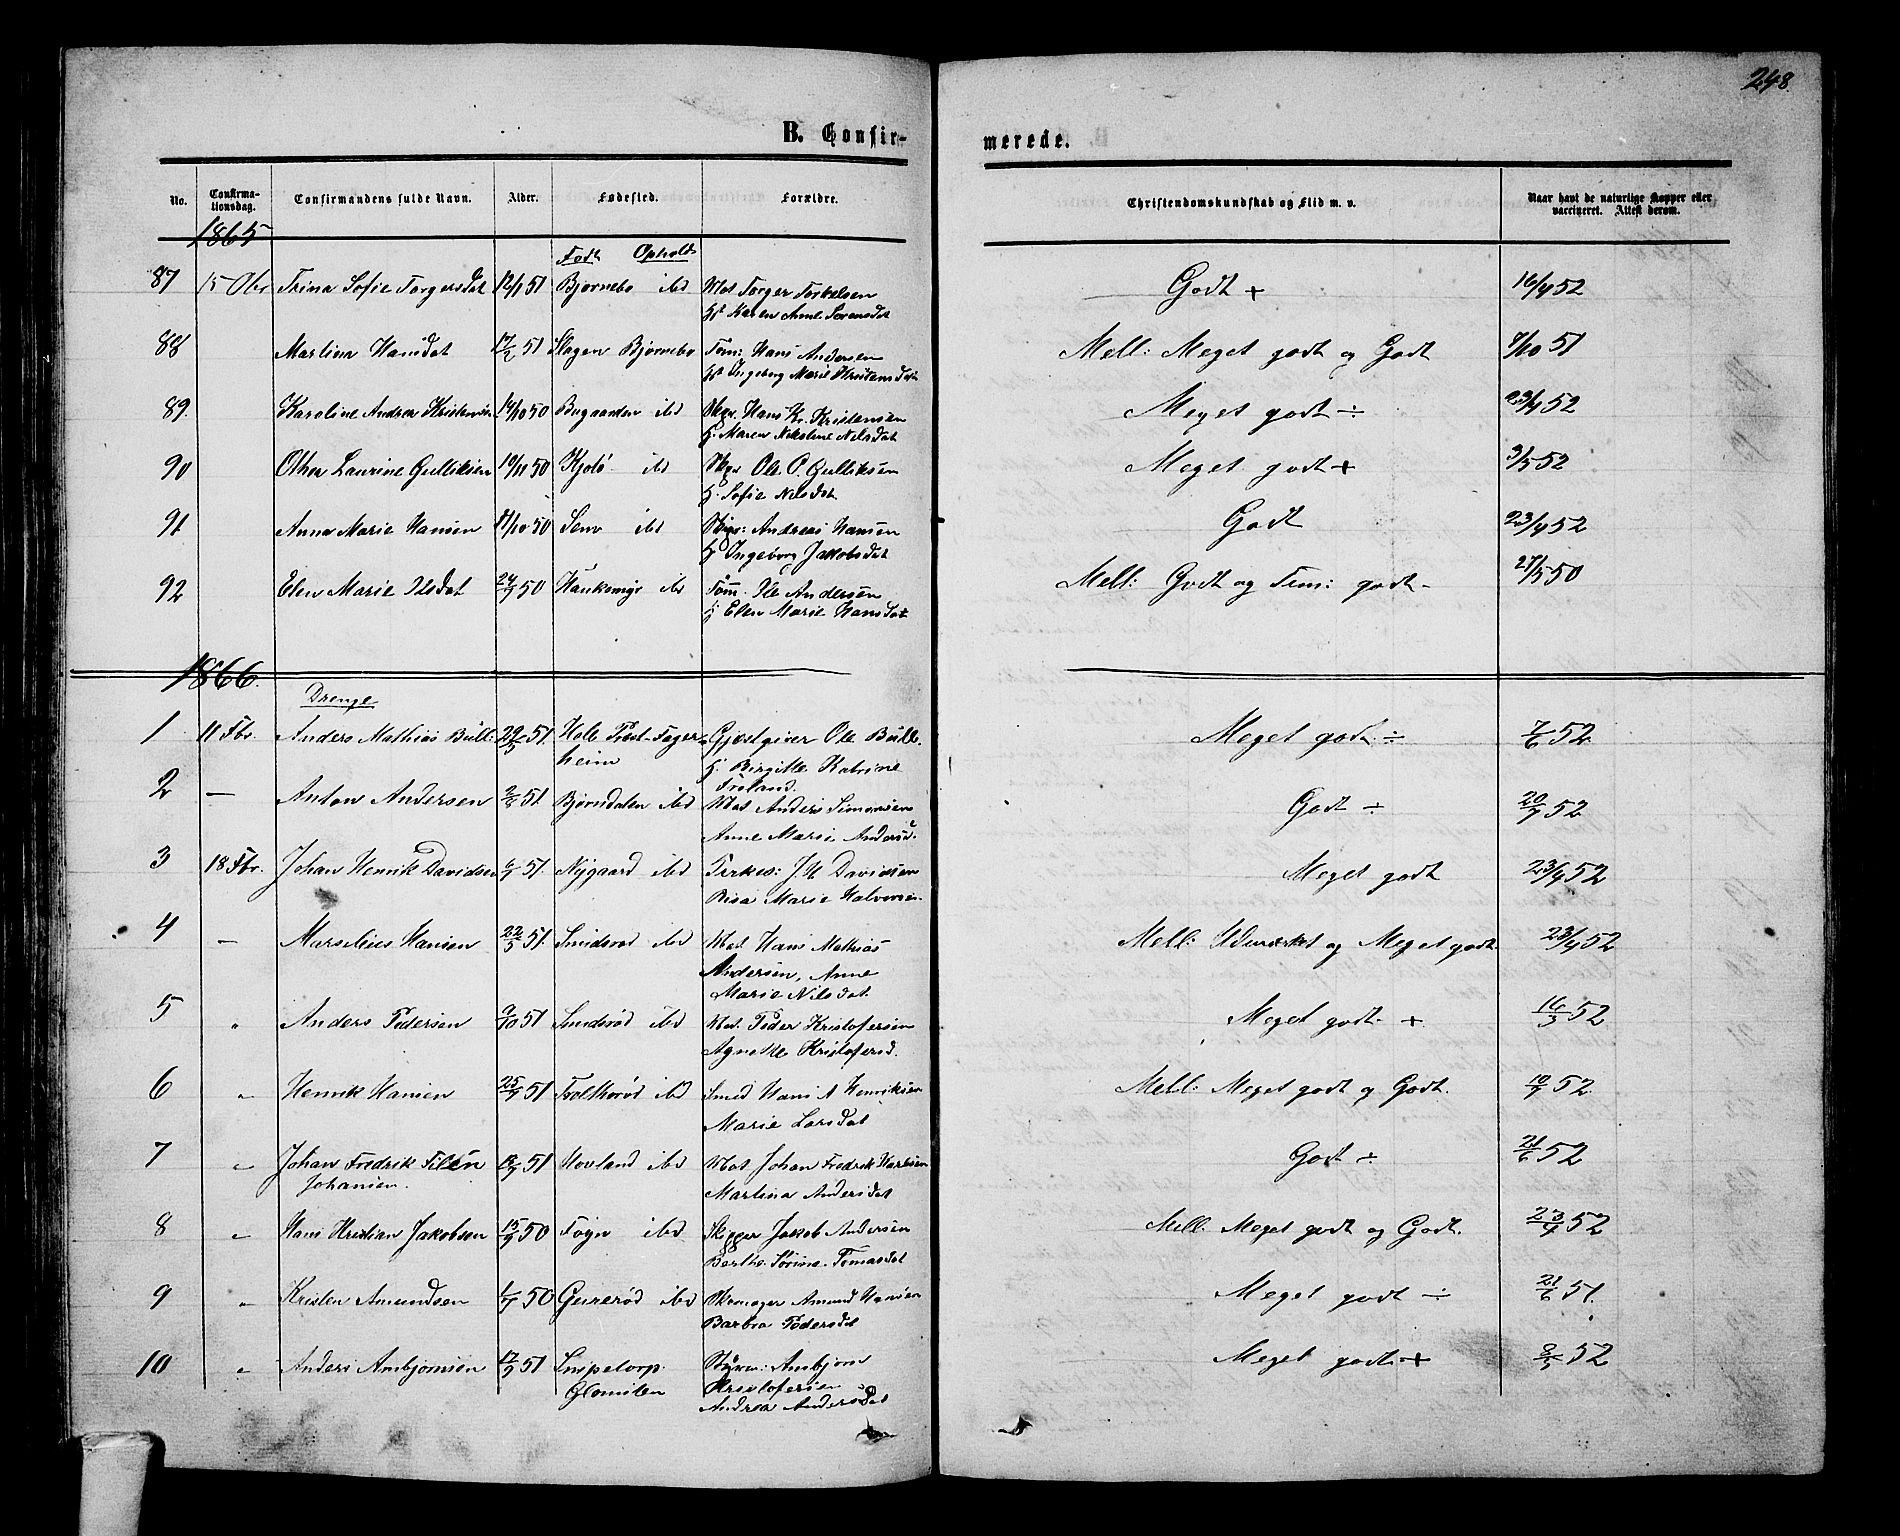 248.
B. Confir-
merede.
No. Confirma-tionsdag. Confirmandens fulde Navn. Alder. Fødested. Forældre. Christendomskundskab og Flid m. v. Naar havt de naturlige Kopper eller vaccineret. Attest derom.
1865
Født Ophold
87 15 Obr Trina Sofie Torgersdat 12/1 51 Bjørnebo ibd Mat Torger Torkelsen Godt + 16/4 52
H Karen Anne Sørensdat
88 Martine Hansdat 17/2 51 Slagen Bjørnebo Tøm: Hans Andersen Mell: Meget godt og Godt 7/10 51
H Ingeborg Marie Kristensdat
89. Karoline Andrea Kristensen 14/10 50 Bugaarden ibd Skpr. Hans Kr. Kristensen Meget godt ÷ 23/4 52
H. Maren Nikoline Nilsdat
90 Othea Laurine Gulliksen 10/11 50 Kjolø ibd Skpr Ole O. Gulliksen Meget godt + 3/5 52
H. Sofie Nilsdat
91 Anna Marie Hansen 11/10 50 Sem ibd Skpr: Andreas Hansen Godt 23/4 52
H Ingeborg Jakobsdat
92 Elen Marie Ilsdat 24/9 50 Haukemyr ibd Tøm. Ile Andersen Mell: Godt og Tem: godt - 27/5 50
H Elen Marie Hansdat
1866.
Drenge
1 11 Fbr. Anders Mathias Bull: 29/5 51. Hole Præst- Fager- Gjæstgiver Ole Bull. Meget godt ÷ 7/6 52
heim H. Birgitte Katrine
Frøland.
2 — Anton Andersen 2/4 51 Bjørndalen ibd Mat Anders Simonsen Godt ÷ 20/7 52
Anne Marie Andersd.
3 18 Fbr. Johan Henrik Davidsen 6/7 51. Nygaard ibd J H Davidsen Meget godt 23/4 52
Marie Halvorsen.
4 — Marselius Hansen 22/5 51. Smidsrød ibd Mat Hans Mathias Mell: Udmærket og Meget godt 23/4 52
Andersen, Anne
Marie Nilsdat
5 " Anders Pedersen 9/10 51 Smidsrød ibd Mat. Peder Kristofersen Meget godt + 16/3 52
Agnethe Kristofersd.
6 " Henrik Hansen 25/7 51 Tveitherød ibd Smed Hans A Henriksen Mell: Meget godt og Godt. 10/7 52
Marie Larsdat
7 " Johan Fredrik Tilén 18/7 51 Hovland ibd Mat Johan Fredrik Karlsen Godt ÷ 21/6 52
Johansen. Martina Andersdat
8 " Hans Kristian Jakobsen 15/9 50 Føyn ibd Skipper Jakob Andersen Mell: Meget godt og Godt. 23/4 52
Berthe Sørine Tomasdat
9 " Kristen Amundsen 1/7 50 Gurerød ibd Skomager Amund Hansen Meget godt ÷ 21/6 51.
Barbra Pedersdat
10 " Anders Ambjørnsen 17/9 51 Snipetorp Styrm: Ambjørn Meget godt + 8/5 52
Glomsten Kristofersen
Andrea Andersdat